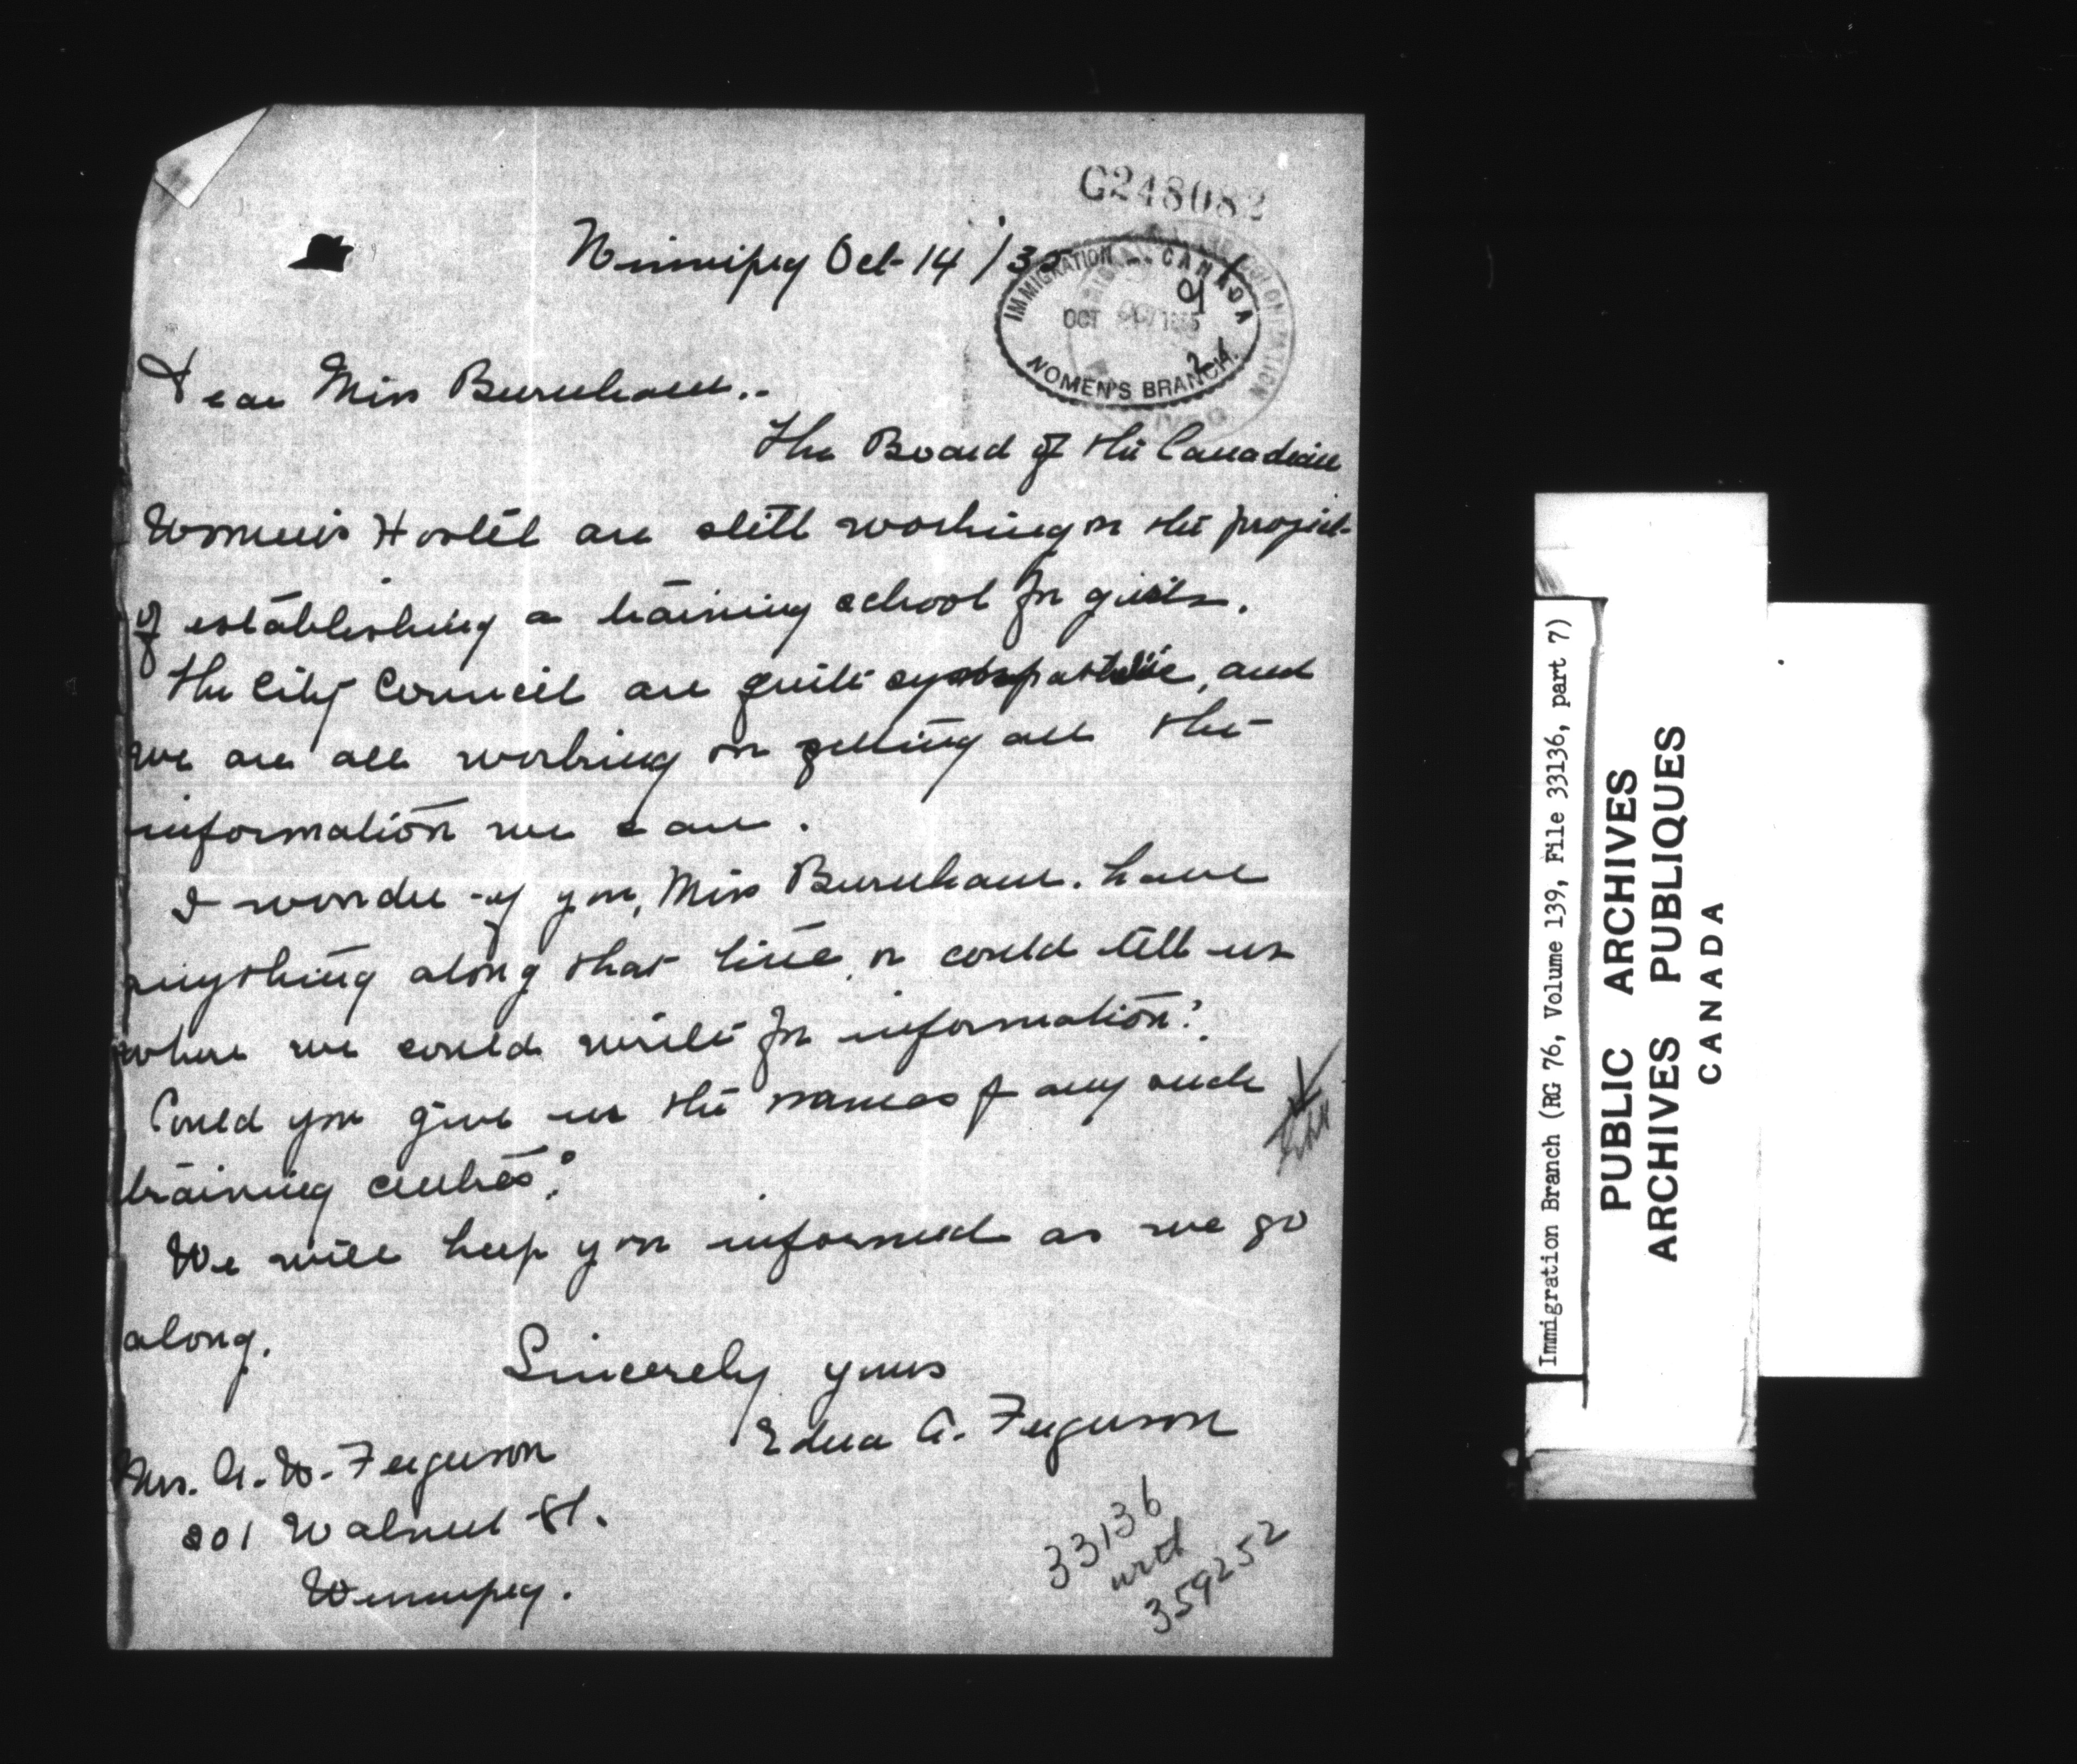 G248082
Winnipeg Oct 14/35
IMMIGRATION CANADA
OCT 1935
WOMEN'S BRANCH.
Dear Miss Burnham..
The Board of the Canadian
Women's Hostel are still working on the project
of establishing a training school for girls.
The City Council are quite sympathetic, and
we are all working on getting all the
information we can.
I wonder if you, Miss Burnham. have
anything along that line, or could tell us
where we could write for information?
Could you give us the names of any such
training centres?
We will keep you informed as we go
along.
Sincerely yours
Edna A. Ferguson
Mrs. A. W. Ferguson
201 Walnut St.
Winnipeg.
33136
with
359252
Immigration Branch (RG 76, Volume 139, File 33136, part 7)
PUBLIC ARCHIVES
ARCHIVES PUBLIQUES
CANADA